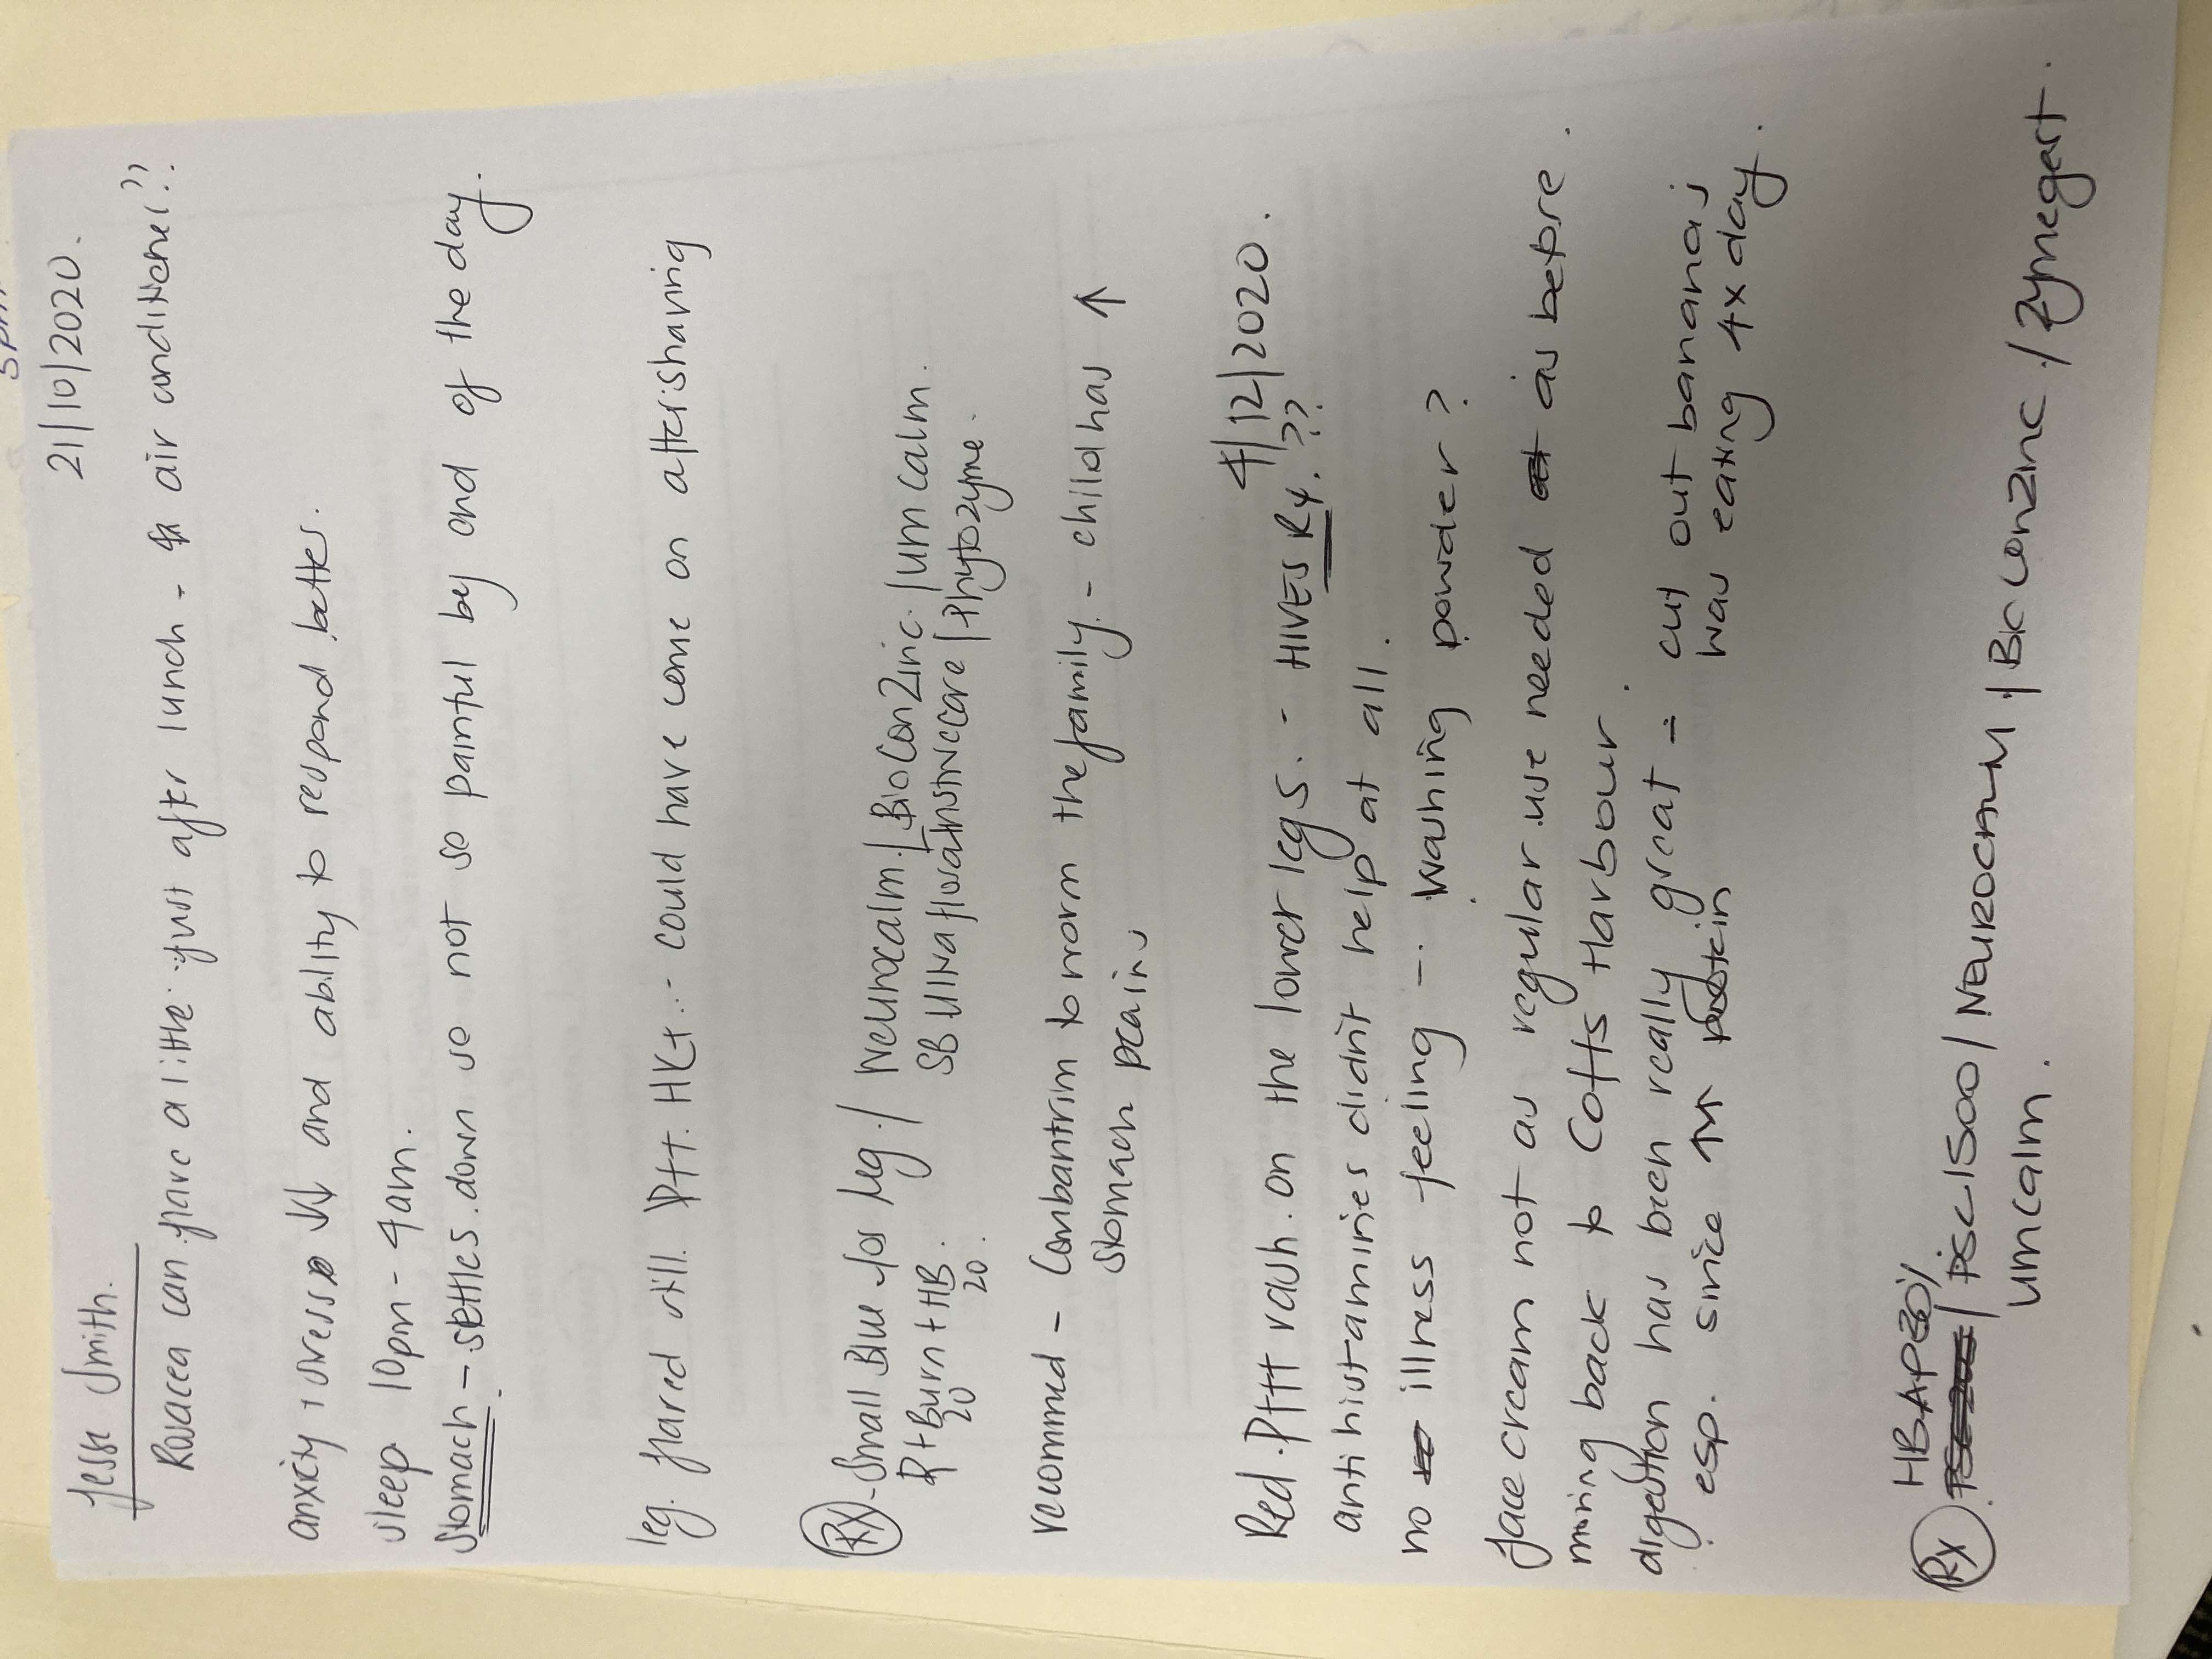 Jesse Smith. 21/10/2020.
Rosacea can flare a little just after lunch - air conditioner??
anxiety, stress ↓ and ability to respond better.
sleep 10pm - 4am.
Stomach - settles down so not so painful by end of the day.
leg flared still. could have come on after shaving
Rx - Small Blue for leg / Neurocalm / BioConZinc / Umcalm.
Burn + HB. SB Ultraflora / Phytozyme.
20 20.
recommed - Combantrim to worm the family - child has ↑
stomach pains
4/12/2020.
Red rash on the lower legs. - HIVES Rx. ??
antihistamines didnt help at all.
no illness feeling - washing powder?
face cream not as regular use needed as before.
moving back to Coffs Harbour.
digestion has been really great - cut out bananas
esp. since ↑ protein was eating 4x day.
HBAP
Rx / PSC1500 / NEUROCALM / BioConZinc / Zymegest.
Umcalm.